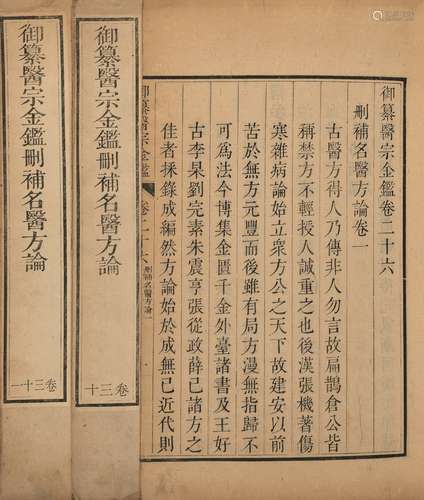 御纂醫宗金鑑卷二十六
刪補名醫方論卷一
古醫方得人乃傳非人勿言故扁鵲倉公皆
稱禁方不輕授人誠重之也後漢張機著傷
寒雜病論始立衆方公之天下故建安以前
苦於無方元豐而後雖有局方漫無指歸不
可爲法今博集金匱千金外臺諸書及王好
古李杲劉完素朱震亨張從政薛已諸方之
佳者採錄成編然方論始於成無已近代則
御纂醫宗金鑑
卷二十六
刪補名醫方論一
御纂醫宗金鑑刪補名醫方論
卷三十
御纂醫宗金鑑刪補名醫方論
卷三十一